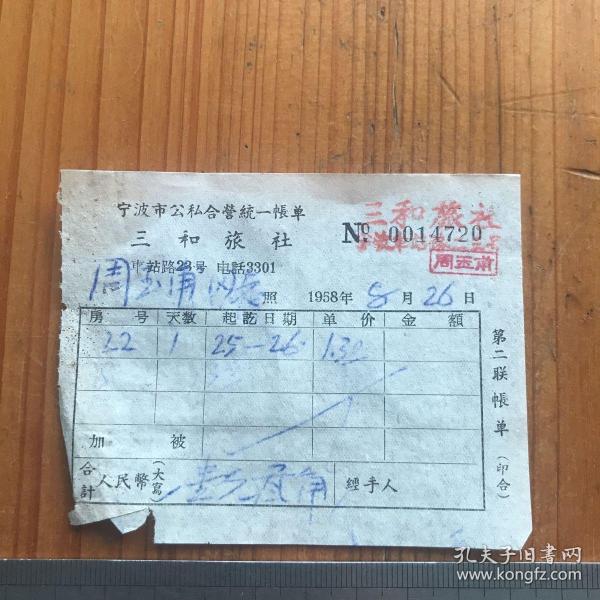 宁波市公私合營統一帳单
三和旅社
№ 0014720
三和旅社
周五甫
車站路23号 电話3301
周玉甫 同志 照 1958年8月26日
房号 天数 起訖日期 单价 金額
22 1 25—26 1.30
加被
合計 人民幣(大寫) 壹元叁角 經手人
第二联帳单(印合)
孔夫子旧书网
www.kongfz.com